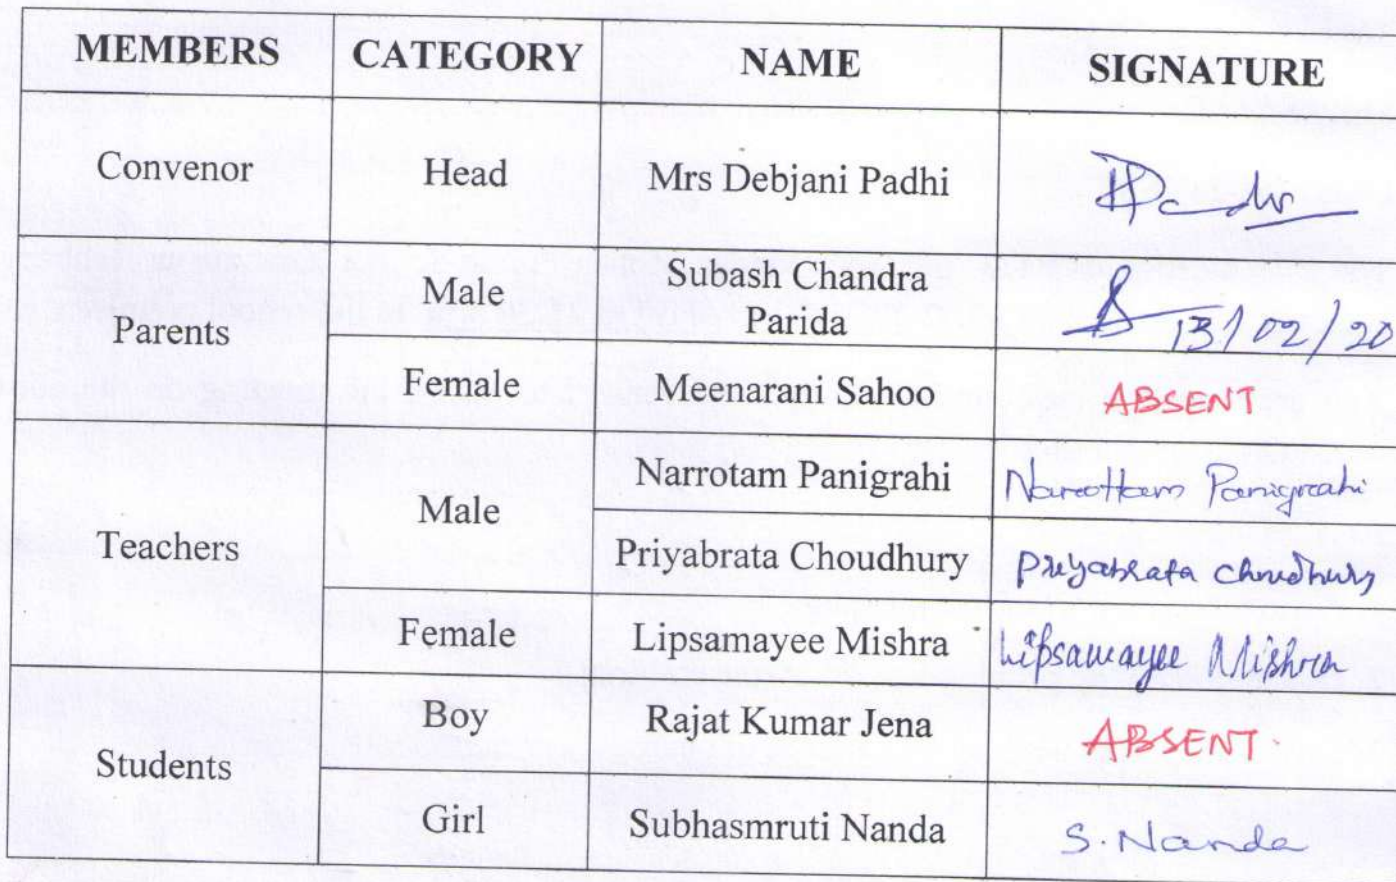 MEMBERS CATEGORY NAME SIGNATURE
Convenor Head Mrs Debjani Padhi
Parents Male Subash Chandra
Parida 13/02/20
Female Meenarani Sahoo ABSENT
Teachers Male Narrotam Panigrahi Narottam Panigrahi
Priyabrata Choudhury Priyabrata Choudhury
Female Lipsamayee Mishra Lipsamayee Mishra
Students Boy Rajat Kumar Jena ABSENT.
Girl Subhasmruti Nanda S. Nanda